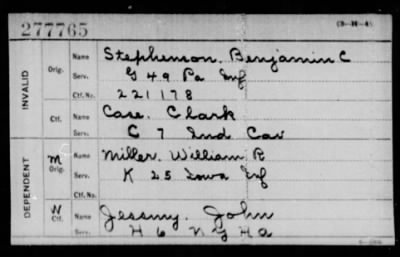 277765
(3-H-4)
INVALID
Orig. Name Stephenson, Benjamin C
Serv. G 49 Pa Inf
Ctf. No. 221178
Ctf. Name Case, Clark
Serv. C 7 Ind Cav
DEPENDENT
M Orig. Name Miller, William R
Serv. K 25 Iowa Inf
Ctf. No.
W Ctf. Name Jessmy, John
Serv. H 6 N Y H A